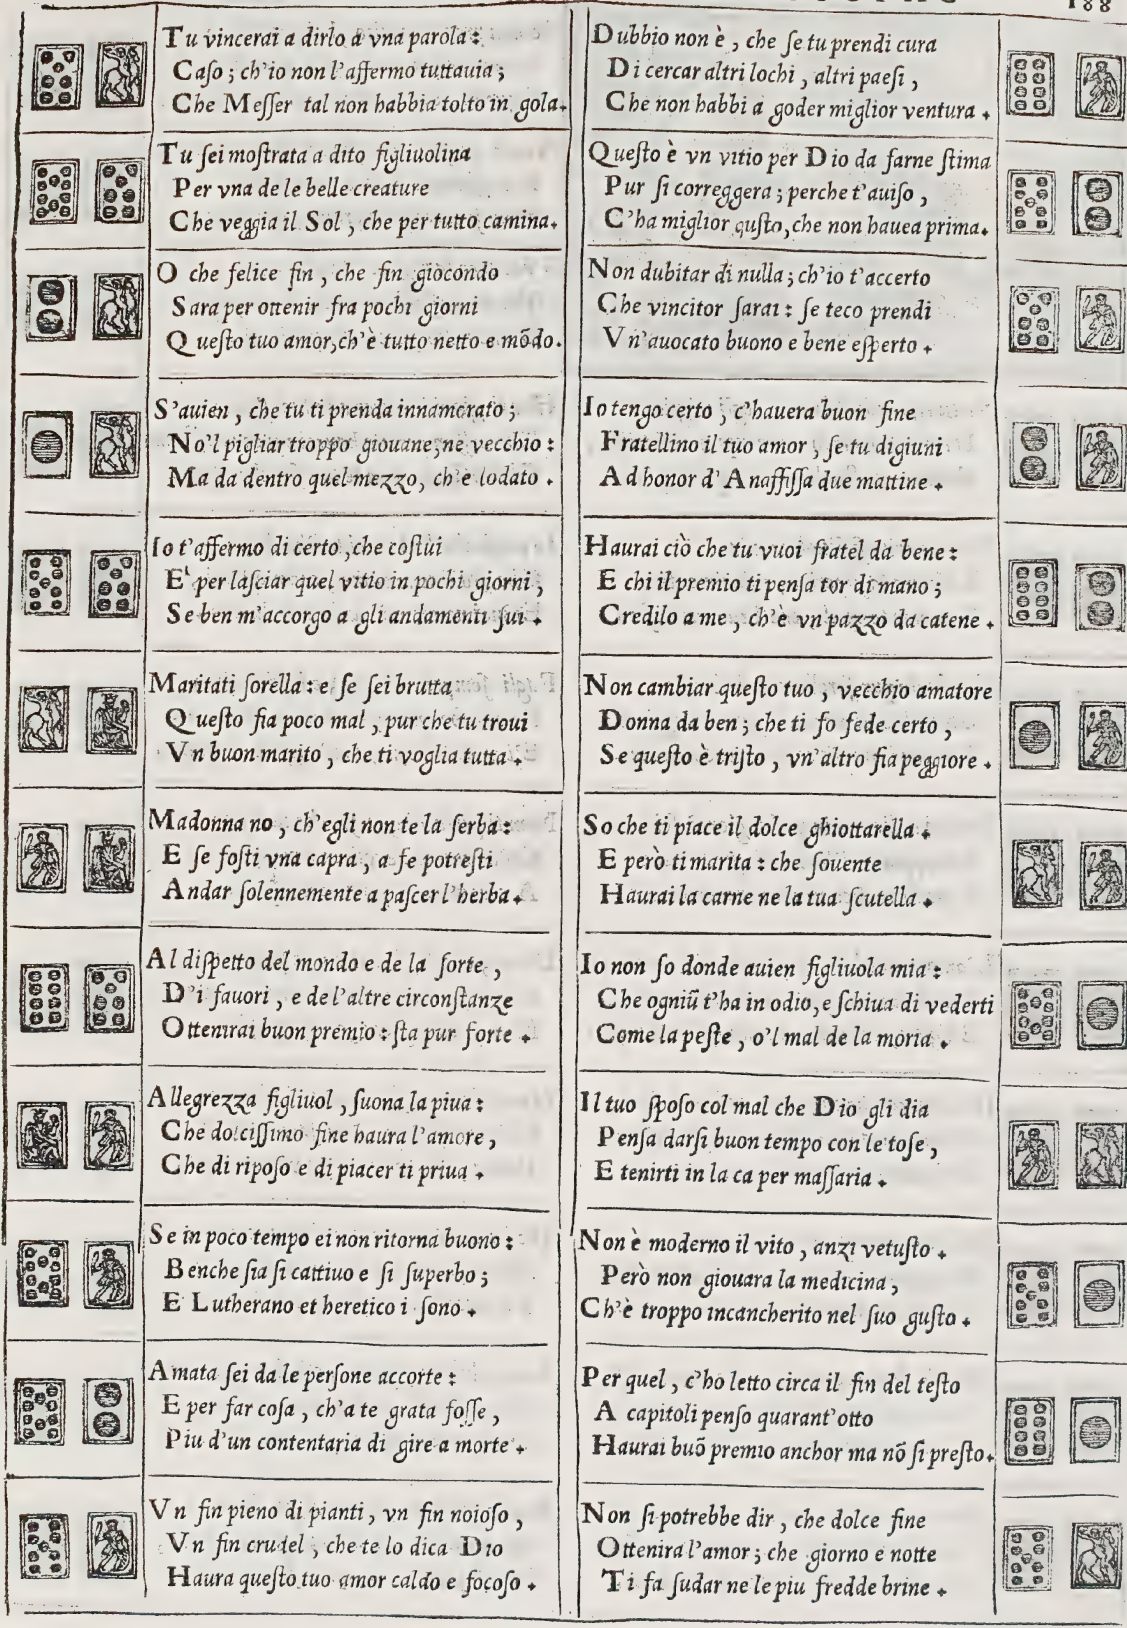 188
Tu vincerai a dirlo a vna parola:
Caso; ch'io non l'affermo tuttauia;
Che Messer tal non habbia tolto in gola.
Tu sei mostrata a dito figliuolina
Per vna de le belle creature
Che veggia il Sol, che per tutto camina.
O che felice fin, che fin giocondo
Sara per ottenir fra pochi giorni
Questo tuo amor, ch'è tutto netto e mõdo.
S'auien, che tu ti prenda innamorato;
No'l pigliar troppo giouane, ne vecchio:
Ma da dentro quel mezzo, ch'è lodato.
Io t'affermo di certo, che costui
E' per lasciar quel vitio in pochi giorni,
Se ben m'accorgo a gli andamenti sui.
Maritati sorella: e se sei brutta
Questo fia poco mal, pur che tu troui
Vn buon marito, che ti voglia tutta.
Madonna no, ch'egli non te la serba:
E se fosti vna capra, a fe potresti
Andar solennemente a pascer l'herba.
Al dispetto del mondo e de la sorte,
D'i fauori, e de l'altre circonstanze
Ottenirai buon premio: sta pur forte.
Allegrezza figliuol, suona la piua:
Che dolcissimo fine haura l'amore,
Che di riposo e di piacer ti priua.
Se in poco tempo ei non ritorna buono:
Benche sia si cattiuo e si superbo;
E Lutherano et heretico i sono.
Amata sei da le persone accorte:
E per far cosa, ch'a te grata fosse,
Piu d'un contentaria di gire a morte.
Vn fin pieno di pianti, vn fin noioso,
Vn fin crudel, che te lo dica Dio
Haura questo tuo amor caldo e focoso.
Dubbio non è, che se tu prendi cura
Di cercar altri lochi, altri paesi,
Che non habbi a goder miglior ventura.
Questo è vn vitio per Dio da farne stima
Pur si correggera; perche t'auiso,
C'ha miglior gusto, che non hauea prima.
Non dubitar di nulla; ch'io t'accerto
Che vincitor sarai: se teco prendi
Vn'auocato buono e bene esperto.
Io tengo certo, c'hauera buon fine
Fratellino il tuo amor, se tu digiuni
Ad honor d'Anaffissa due mattine.
Haurai ciò che tu vuoi fratel da bene:
E chi il premio ti pensa tor di mano;
Credilo a me, ch'è vn pazzo da catene.
Non cambiar questo tuo, vecchio amatore
Donna da ben; che ti fo fede certo,
Se questo è tristo, vn'altro fia peggiore.
So che ti piace il dolce ghiottarella.
E però ti marita: che souente
Haurai la carne ne la tua scutella.
Io non so donde auien figliuola mia:
Che ogniũ t'ha in odio, e schiua di vederti
Come la peste, o'l mal de la moria.
Il tuo sposo col mal che Dio gli dia
Pensa darsi buon tempo con le tose,
E tenirti in la ca per massaria.
Non è moderno il vito, anzi vetusto.
Però non giouara la medicina,
Ch'è troppo incancherito nel suo gusto.
Per quel, c'ho letto circa il fin del testo
A capitoli penso quarant'otto
Haurai buõ premio anchor ma nõ si presto.
Non si potrebbe dir, che dolce fine
Ottenira l'amor; che giorno e notte
Ti fa sudar ne le piu fredde brine.